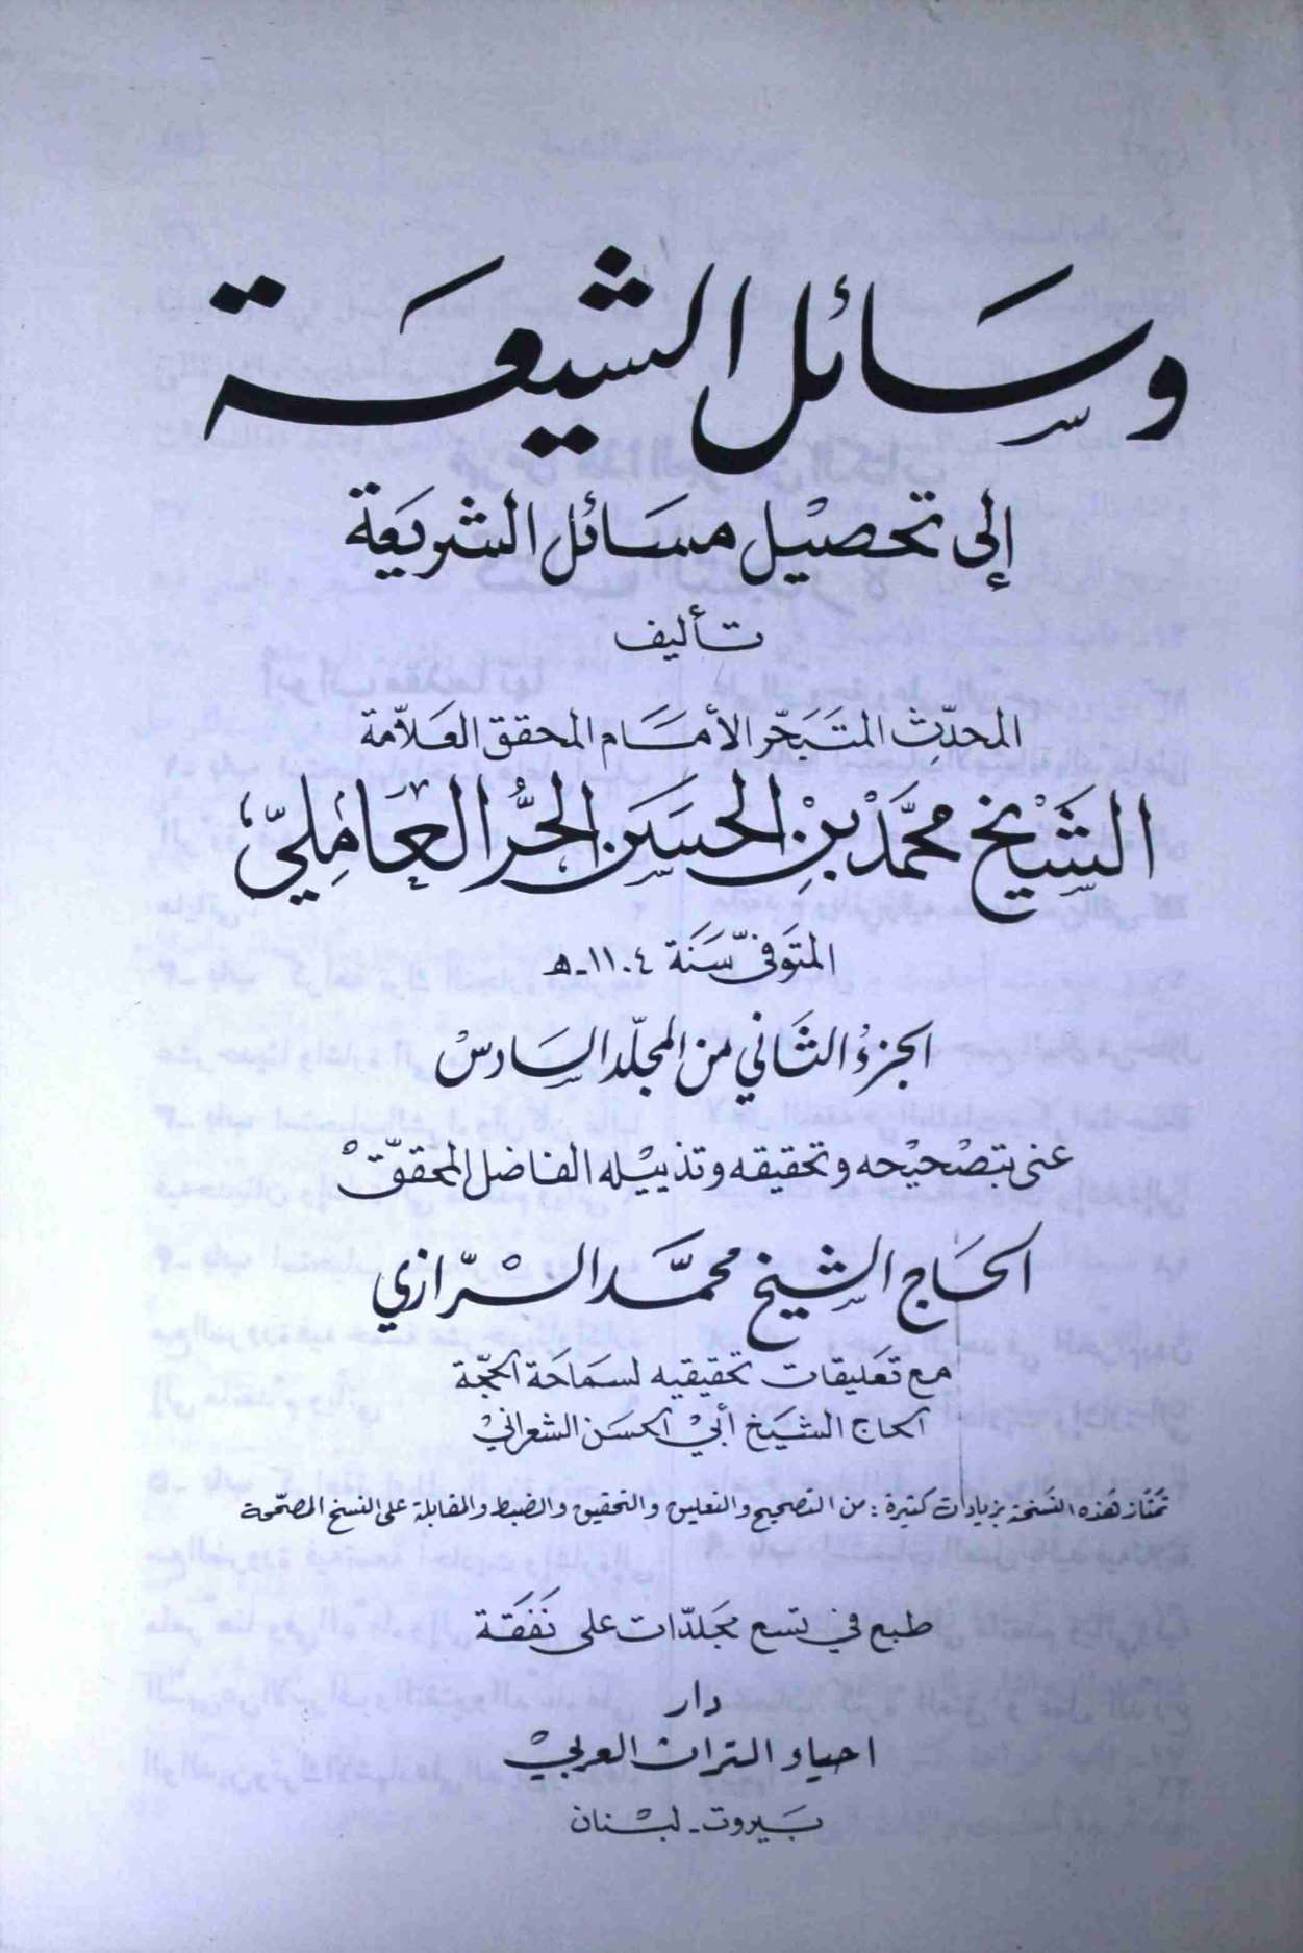 وسائل الشيعة
إلى تحصيل مسائل الشريعة
تأليف
المحدّث المتبَحّر الأمام المحقق العلاّمة
الشَيْخ محمَّد بْنِ الحسَن الحُرّ العَامِليّ،
المتَوَفىّ سَنَة ١١٠٤ـه
الجزءُ الثاني من المجلّد السَادسْ
عنى بتصْحيْحه وتحقيقه وتذييْله الفاضل المحققّ
الحَاج الشيخ محمَّد الرّازي
مع تعليقات تحقيقيه لسَمَاحَة الحجّة
الحاج الشيَخ أبيْ الحسَن الشعرانيْ
تمتاز هذه النسَخة بزيادات كثيرة : من التصحيح والتعليق والتحقيق والضبط والمقابلة على النسخ المصحّحة
طبع في تسع مجلدّات على نَفَقَة
دار
احياء التراث العربيْ
بَيروت - لبْنان